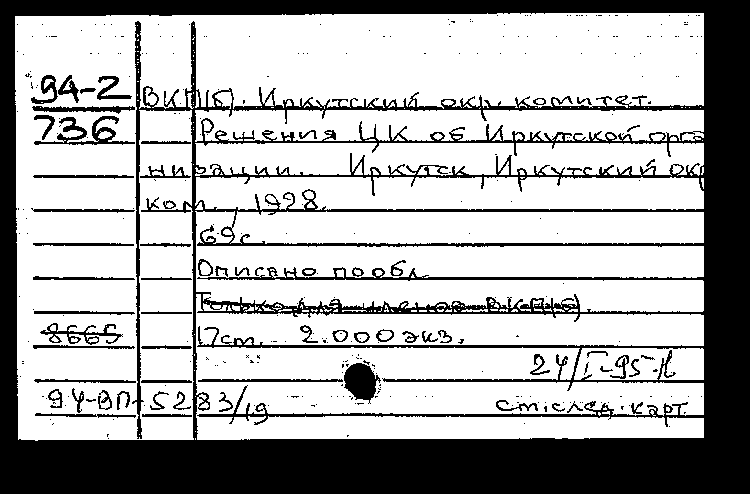 94-2 ВКП(б). Иркутский окр. комитет.
736 Решения ЦК об Иркутской орга
низации... Иркутск, Иркутский окр
ком., 1928.
69с.
Описано по обл.
Только для членов ВКП(б).
8665 17см. 2.000 экз.
24/I-95-Н
94-ВП-5283/19
см. след. карт